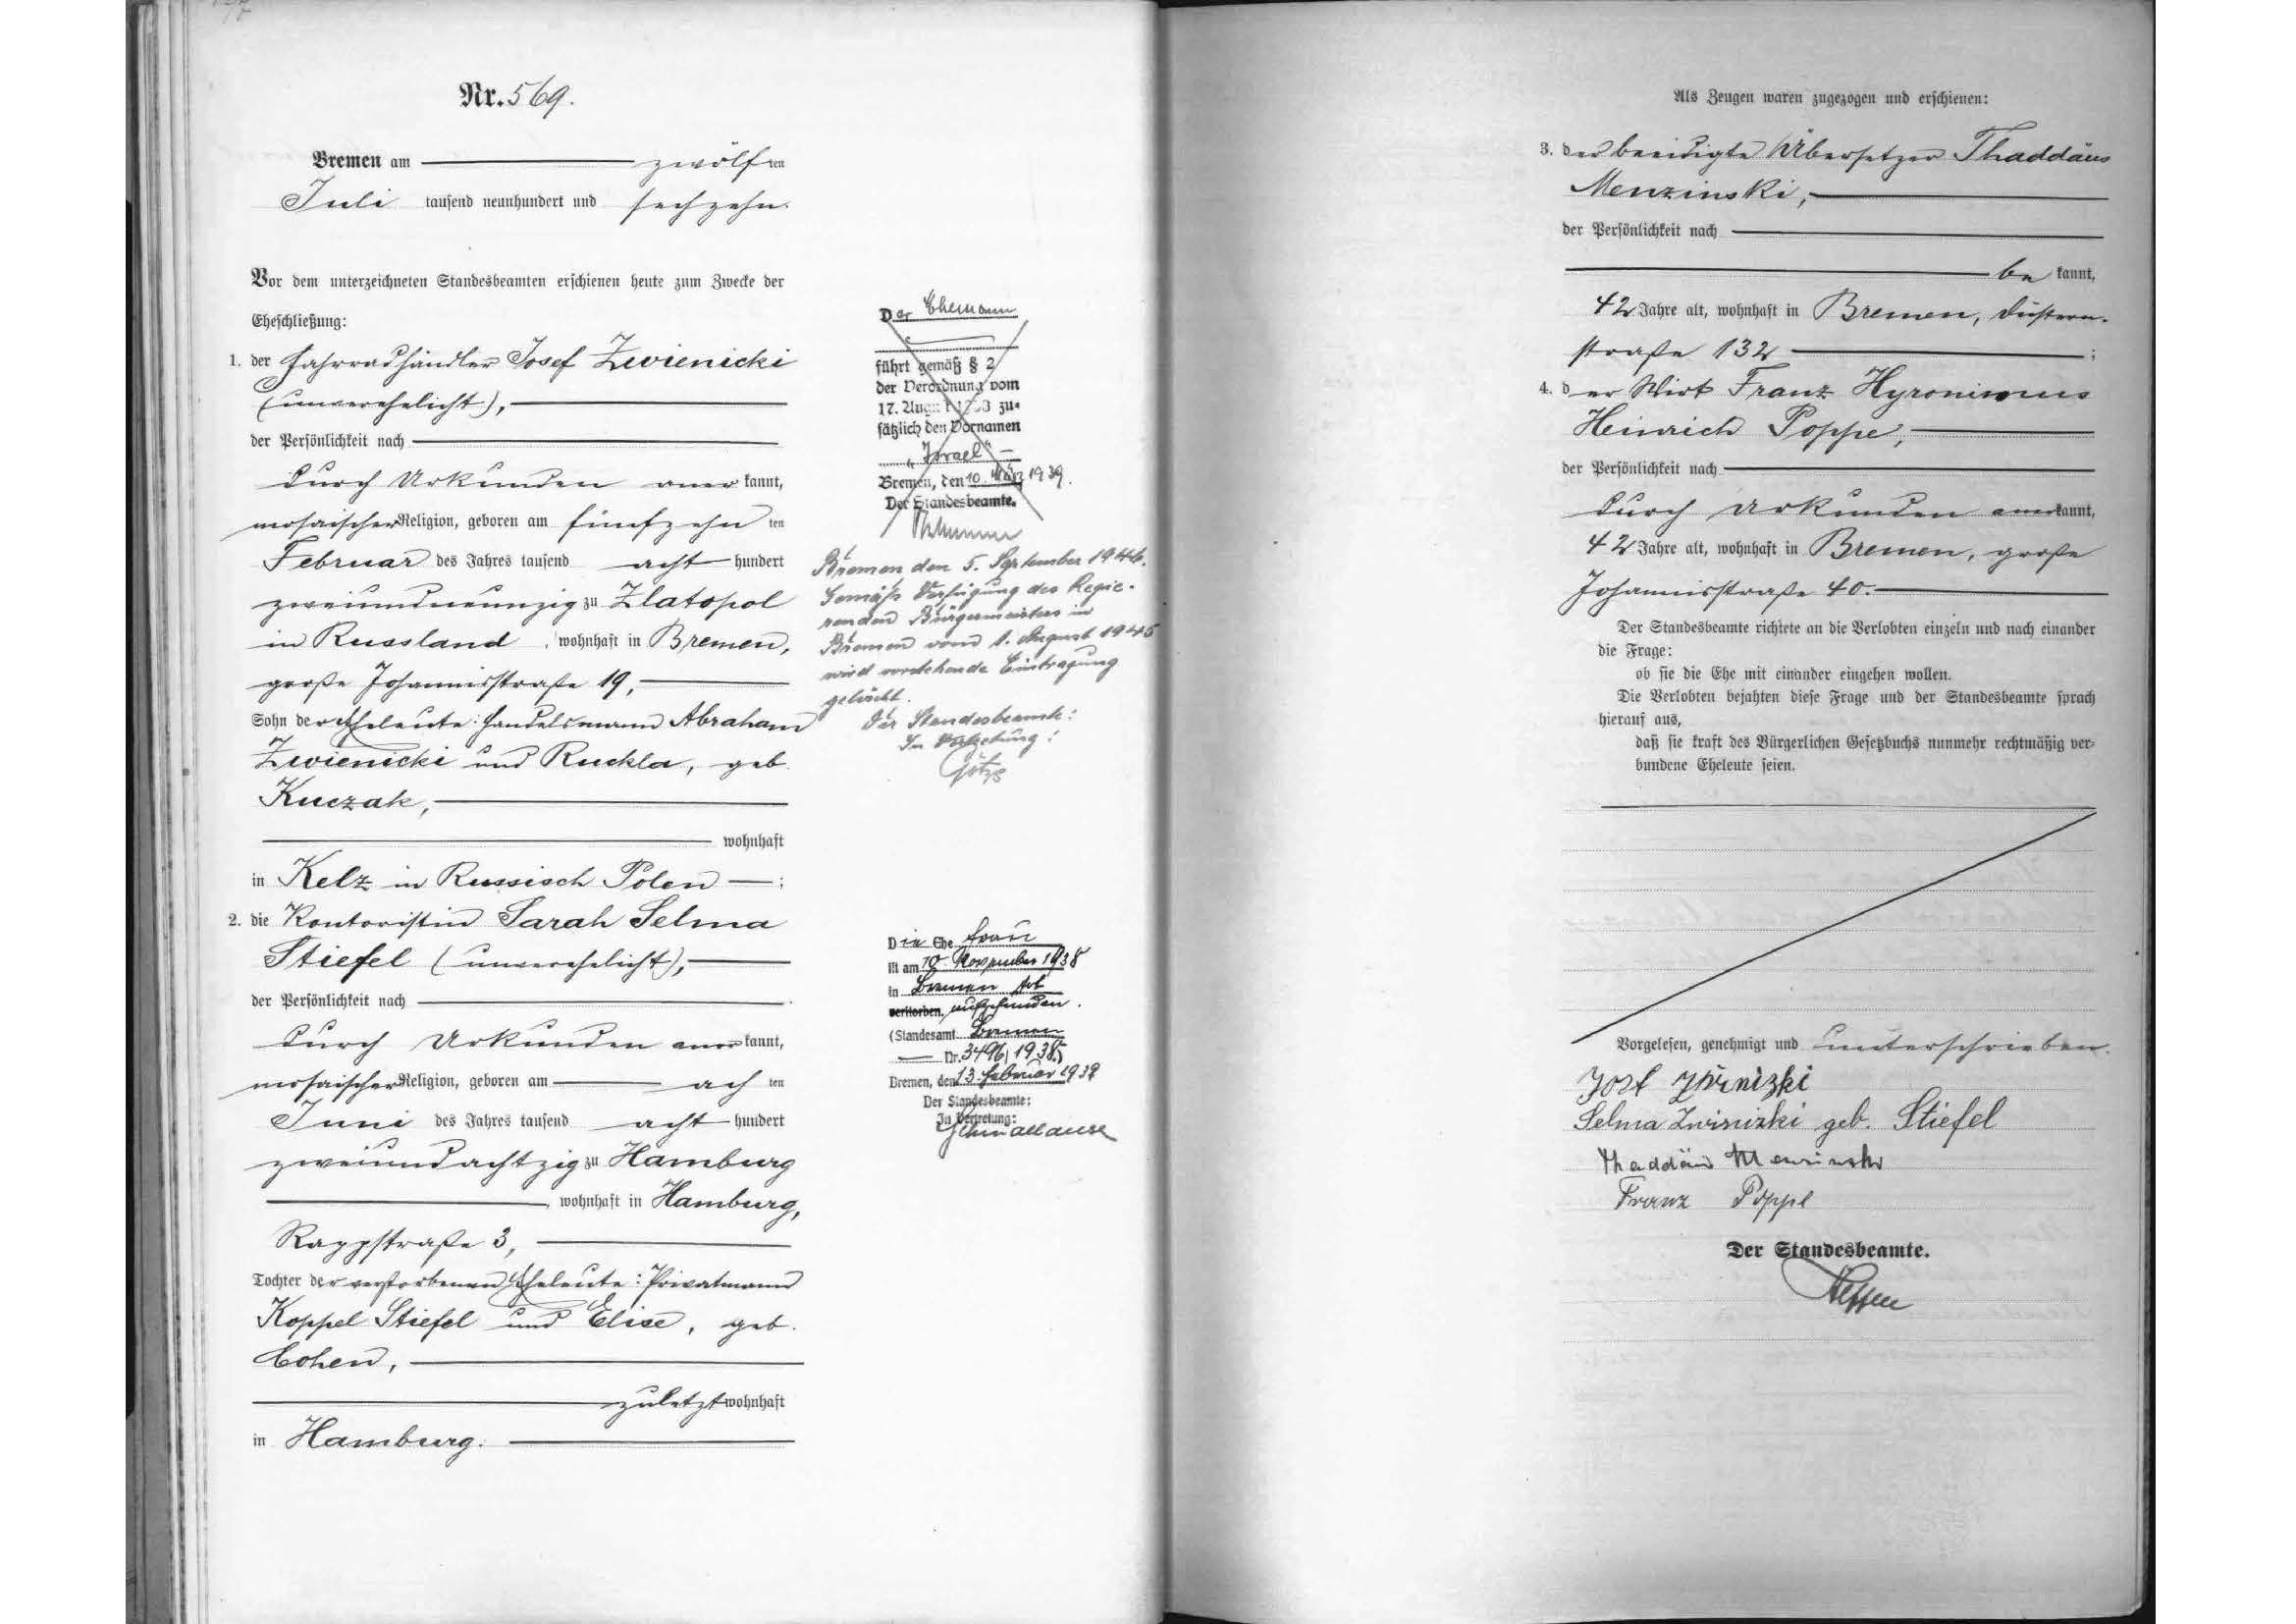 Nr. 569.
Bremen am zwölf ten
Juli tausend neunhundert und sechzehn.
Vor dem unterzeichneten Standesbeamten erschienen heute zum Zwecke der
Eheschließung:
1. der Fahrradhändler Josef Zwienicki
(unverehelicht),
der Persönlichkeit nach
durch Urkunden aner kannt,
mosaischer Religion, geboren am fünfzehn ten
Februar des Jahres tausend acht hundert
zweiundneunzig zu Zlatopol
in Russland, wohnhaft in Bremen,
große Johannisstraße 19,
Sohn der Eheleute: Handelsmann Abraham
Zwienicki und Ruckla, geb.
Kuczak,
wohnhaft
in Kelz in Russisch Polen ;
2. die Kontoristin Sarah Selma
Stiefel (unverehelicht),
der Persönlichkeit nach
durch Urkunden aner kannt,
mosaischer Religion, geboren am ach ten
Juni des Jahres tausend acht hundert
zweiundachtzig zu Hamburg
, wohnhaft in Hamburg,
Rappstraße 3,
Tochter der verstorbenen Eheleute: Privatmann
Koppel Stiefel und Elise, geb.
Cohen,
zuletzt wohnhaft
in Hamburg.
Der Ehemann
führt gemäß § 2
der Verordnung vom
17. August 1938 zu-
sätzlich den Vornamen
"Israel" –
Bremen, den 10. März 1939.
Der Standesbeamte.
Bremen den 5. September 1946.
Gemäß Verfügung des Regie-
renden Bürgermeisters in
Bremen vom 1. August 1945
wird vorstehende Eintragung
gelöscht.
Der Standesbeamte:
In Vertretung:
Götze
Die Ehe frau
ist am 10. November 1938
in Bremen tot
verstorben. aufgefunden.
(Standesamt Bremen
Nr. 3496/1938)
Bremen, den 13. Februar 1939
Der Standesbeamte:
In Vertretung:
Als Zeugen waren zugezogen und erschienen:
3. der beeidigte Übersetzer Thaddäus
Menzinski,
der Persönlichkeit nach
be kannt,
42 Jahre alt, wohnhaft in Bremen, Düstern-
straße 132 ;
4. der Wirt Franz Hyronimus
Heinrich Poppe,
der Persönlichkeit nach
durch Urkunden anerkannt,
42 Jahre alt, wohnhaft in Bremen, große
Johannisstraße 40.
Der Standesbeamte richtete an die Verlobten einzeln und nach einander
die Frage:
ob sie die Ehe mit einander eingehen wollen.
Die Verlobten bejahten diese Frage und der Standesbeamte sprach
hierauf aus,
daß sie kraft des Bürgerlichen Gesetzbuchs nunmehr rechtmäßig ver-
bundene Eheleute seien.
Vorgelesen, genehmigt und unterschrieben.
Josef Zwinizki
Selma Zwinizki geb. Stiefel
Thaddäus Menzinski
Franz Poppe
Der Standesbeamte.